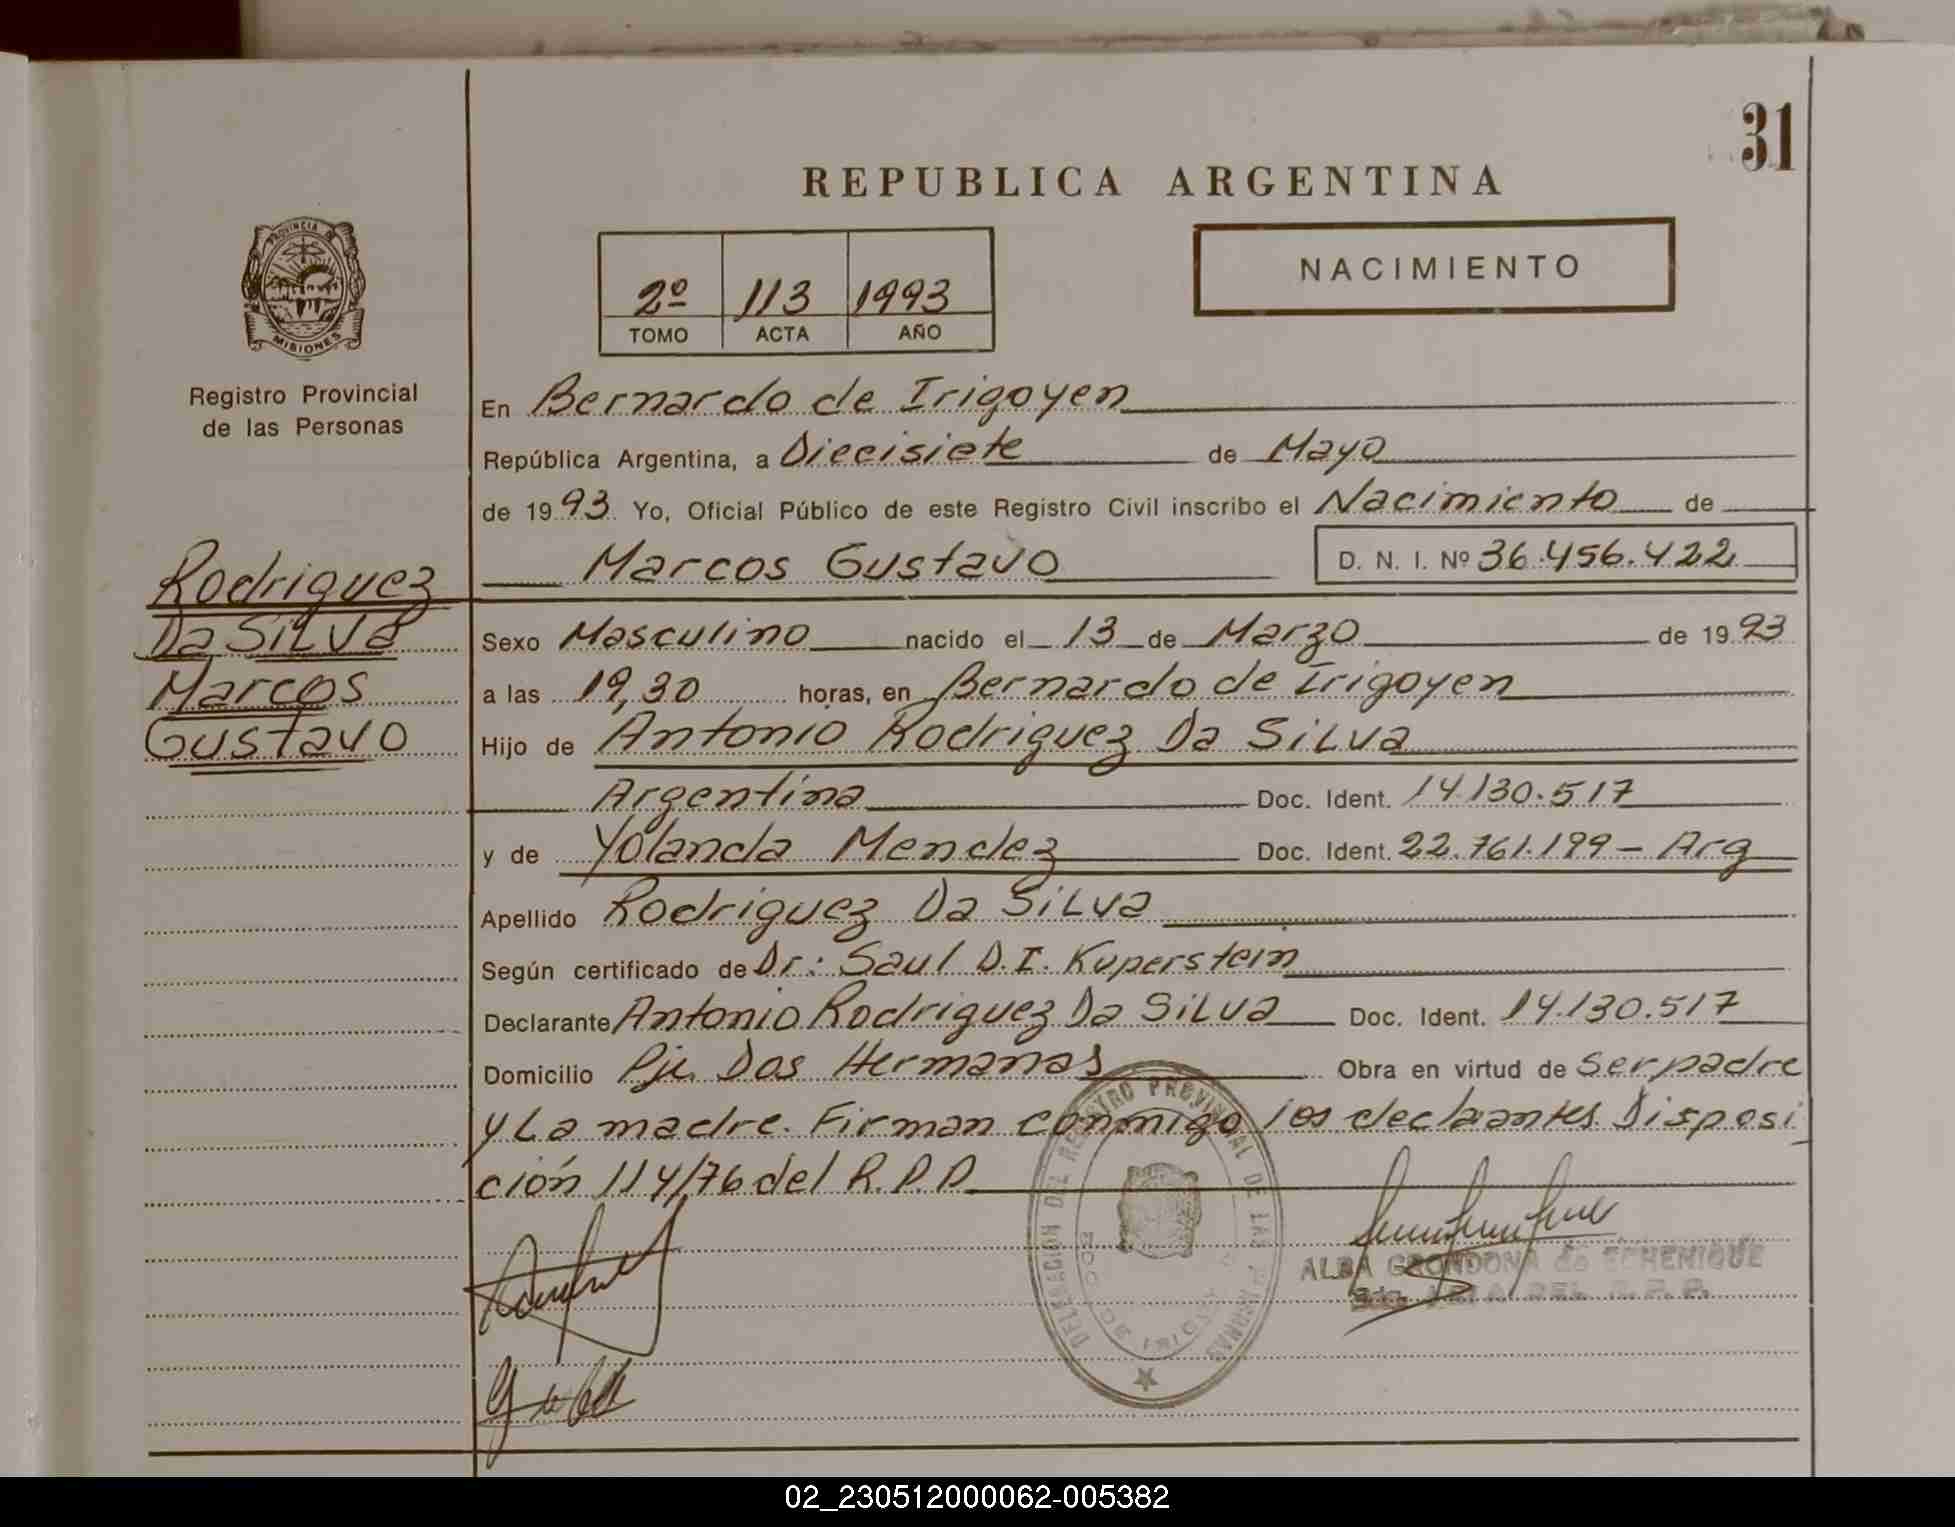 31
REPUBLICA ARGENTINA
PROVINCIA DE
MISIONES
Registro Provincial
de las Personas
2º 113 1993
TOMO ACTA AÑO
NACIMIENTO
En Bernardo de Irigoyen
República Argentina, a Diecisiete de Mayo
de 1993 Yo, Oficial Público de este Registro Civil inscribo el Nacimiento de
Marcos Gustavo D. N. I. Nº 36.456.422
Rodriguez
Da SiLva
Marcos
Gustavo
Sexo Masculino nacido el 13 de Marzo de 1993
a las 19,30 horas, en Bernardo de Irigoyen
Hijo de Antonio Rodriguez Da SiLva
Argentina Doc. Ident. 14.130.517
y de Yolanda Mendez Doc. Ident. 22.761.199 - Arg
Apellido Rodriguez Da SiLva
Según certificado de Dr: Saul D.I. Kuperstein
Declarante Antonio Rodriguez Da SiLva Doc. Ident. 14.130.517
Domicilio Pje. Dos Hermanas Obra en virtud de Ser padre
y La madre. Firman conmigo los declarantes. Disposi
ción 114/76 del R.P.P.
DELEGACION DEL REGISTRO PROVINCIAL DE LAS PERSONAS
DE IRIGOYEN
ALBA GRONDONA de ECHENIQUE
DEL R.P.P.
02_230512000062-005382